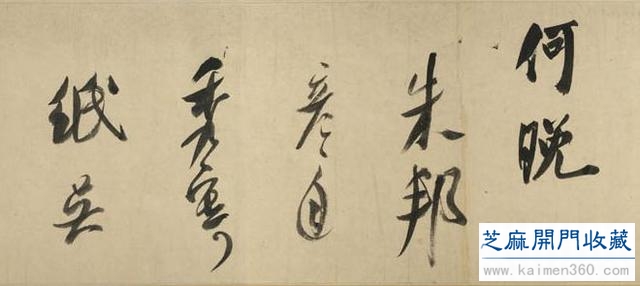 何晚
朱邦
彦自
秀寄
紙吴
芝麻開門收藏
www.kaimen360.com